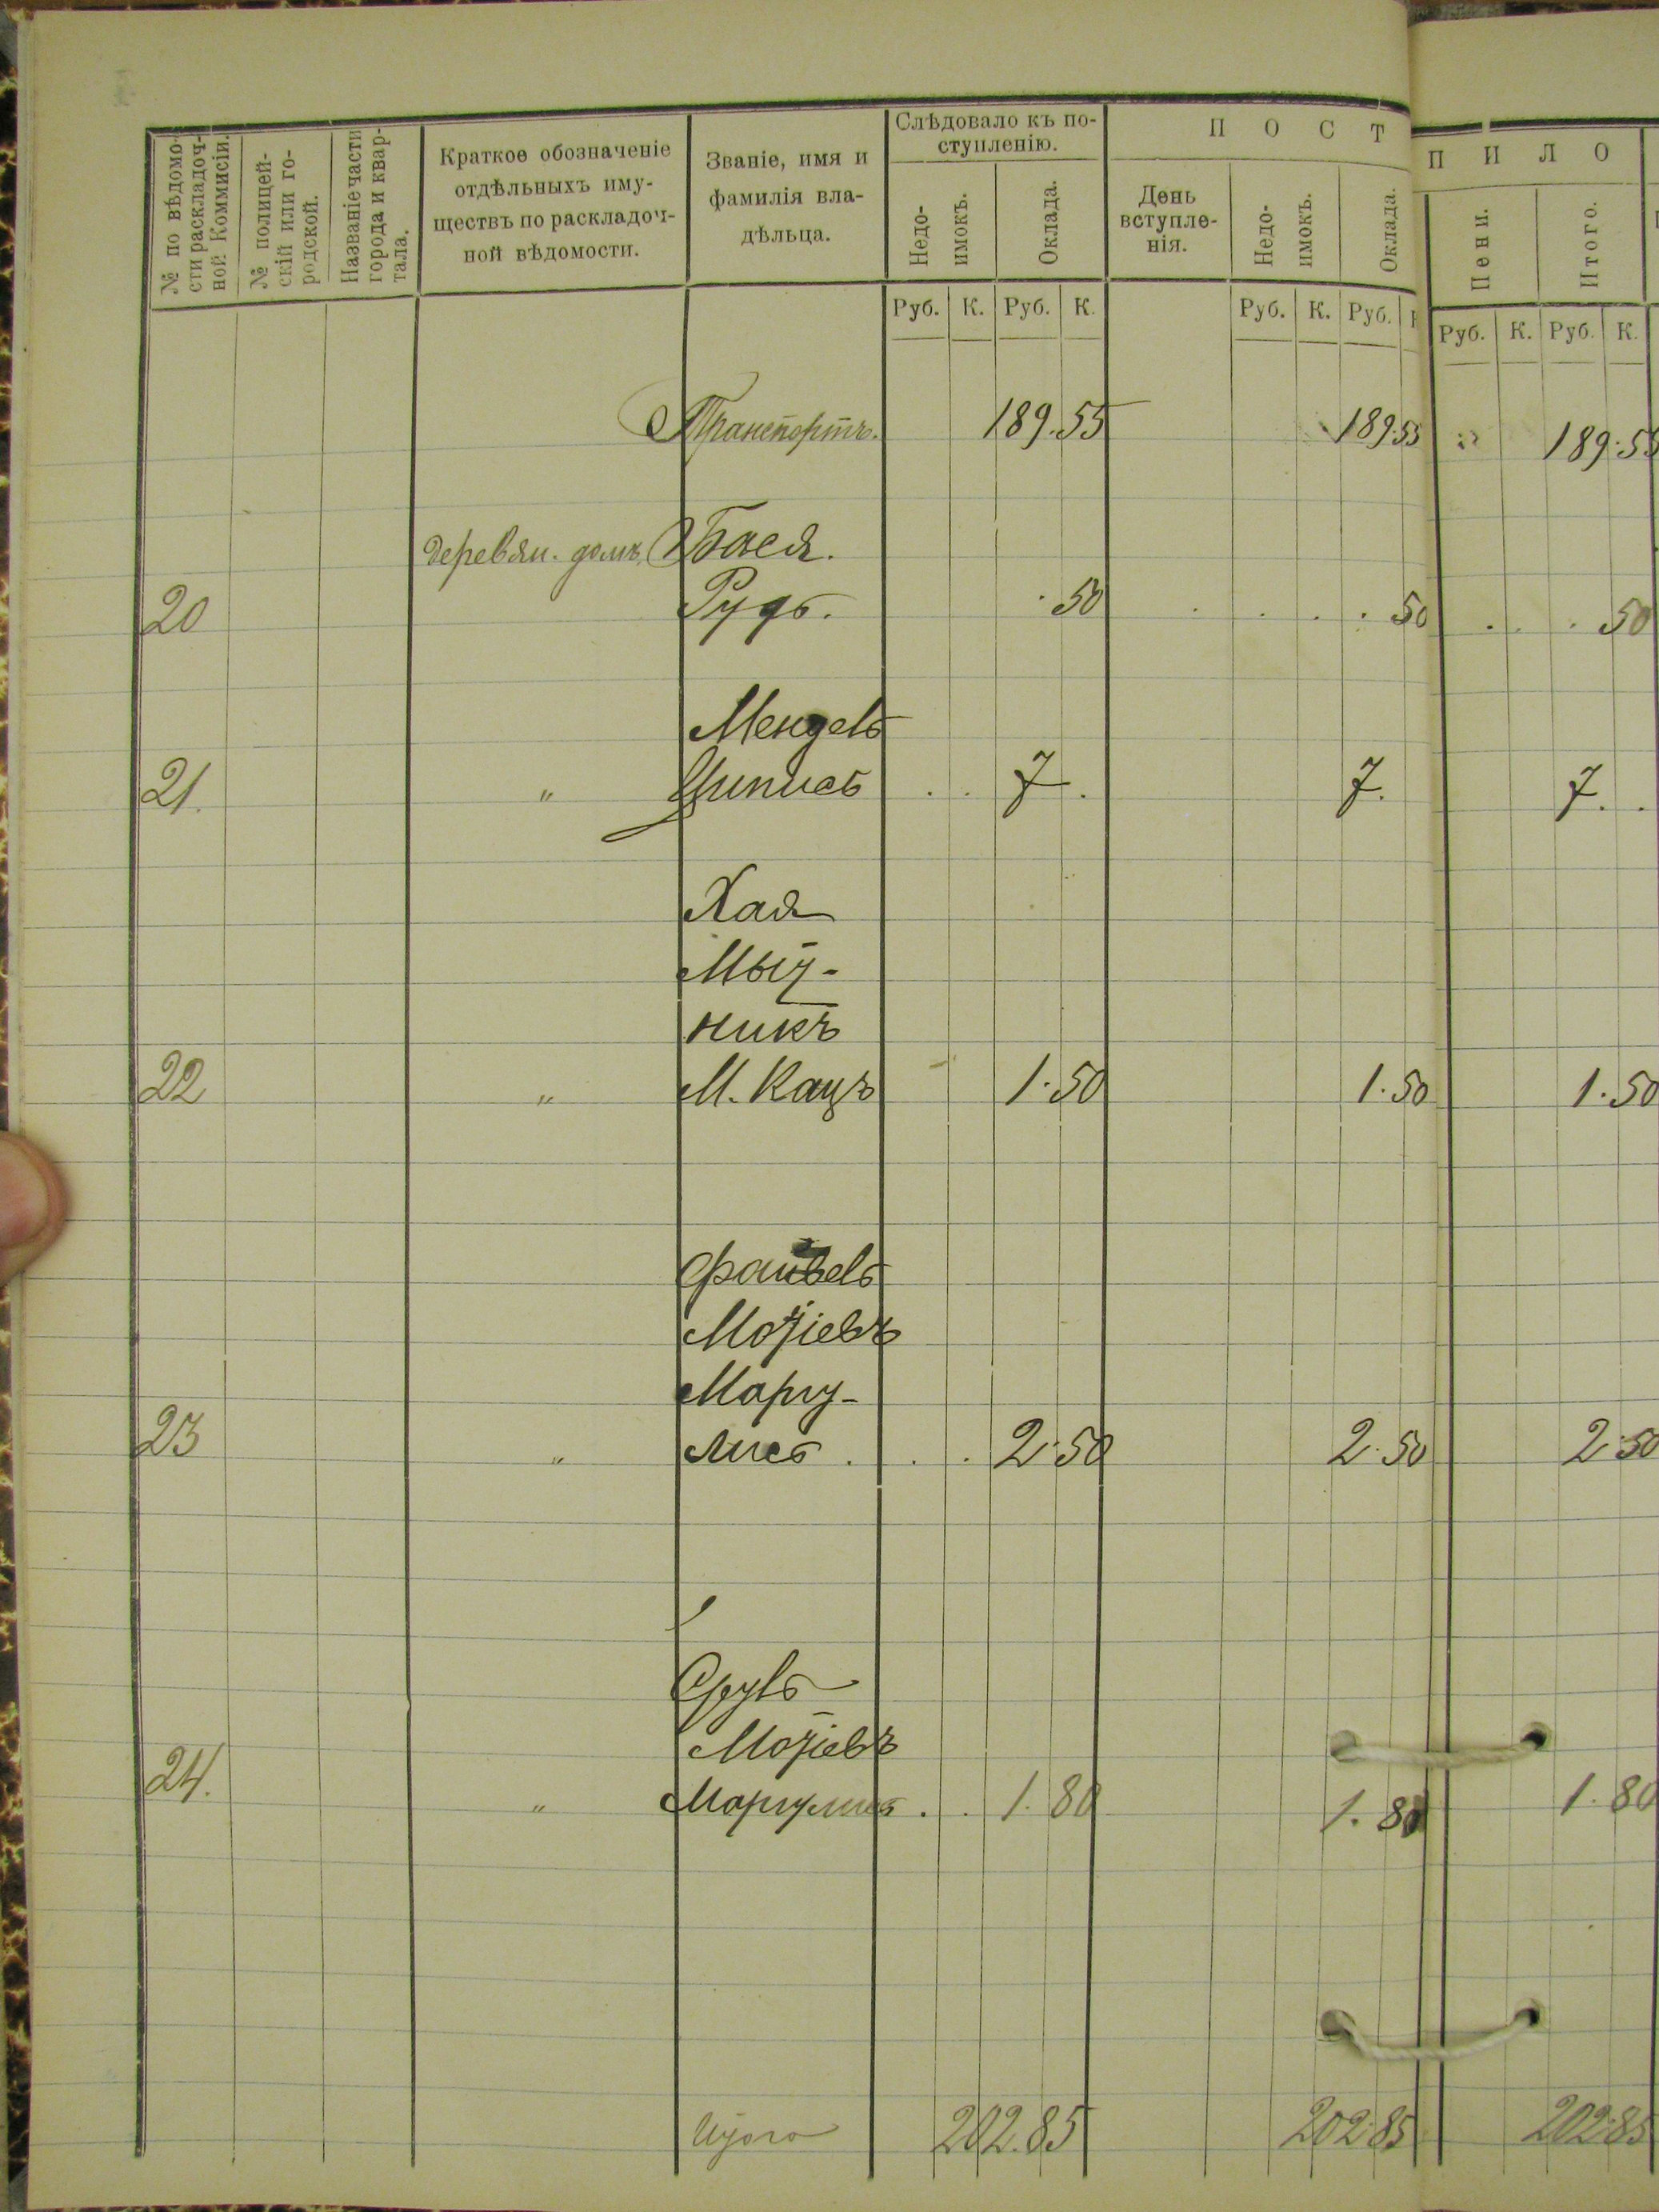 № по вѣдомо-
сти раскладоч-
ной Коммисіи.
№ полицей-
скій или го-
родской.
Названіе части
города и квар-
тала.
Краткое обозначеніе
отдѣльныхъ иму-
ществъ по раскладоч-
ной вѣдомости.
Званіе, имя и
фамилія вла-
дѣльца.
Слѣдовало къ по-
ступленію.
Недо-
имокъ.
Оклада.
П О С Т
П И Л О
День
вступле-
нія.
Недо-
имокъ.
Оклада.
Пени.
Итого.
Руб. К. Руб. К. Руб. К. Руб. Руб. К. Руб. К.
Транспортъ. 189.55 189.55 " 189.55
деревян. домъ. Бася.
20 Рудь. . 50 . . . . 50 . . . 50
Мендель
21. " Ципись . . 7 . 7. 7. .
Хая
Мыч-
никъ
22 " М. Кацъ 1.50 1.50 1.50
Файвель
Мошіевъ
Маргу-
23 " лись . . . 2.50 2.50 2.50
Сруль
Мошіевъ
24. " Маргулись . . 1.80 1.80 1.80
Итого 202.85 202.85 202.85